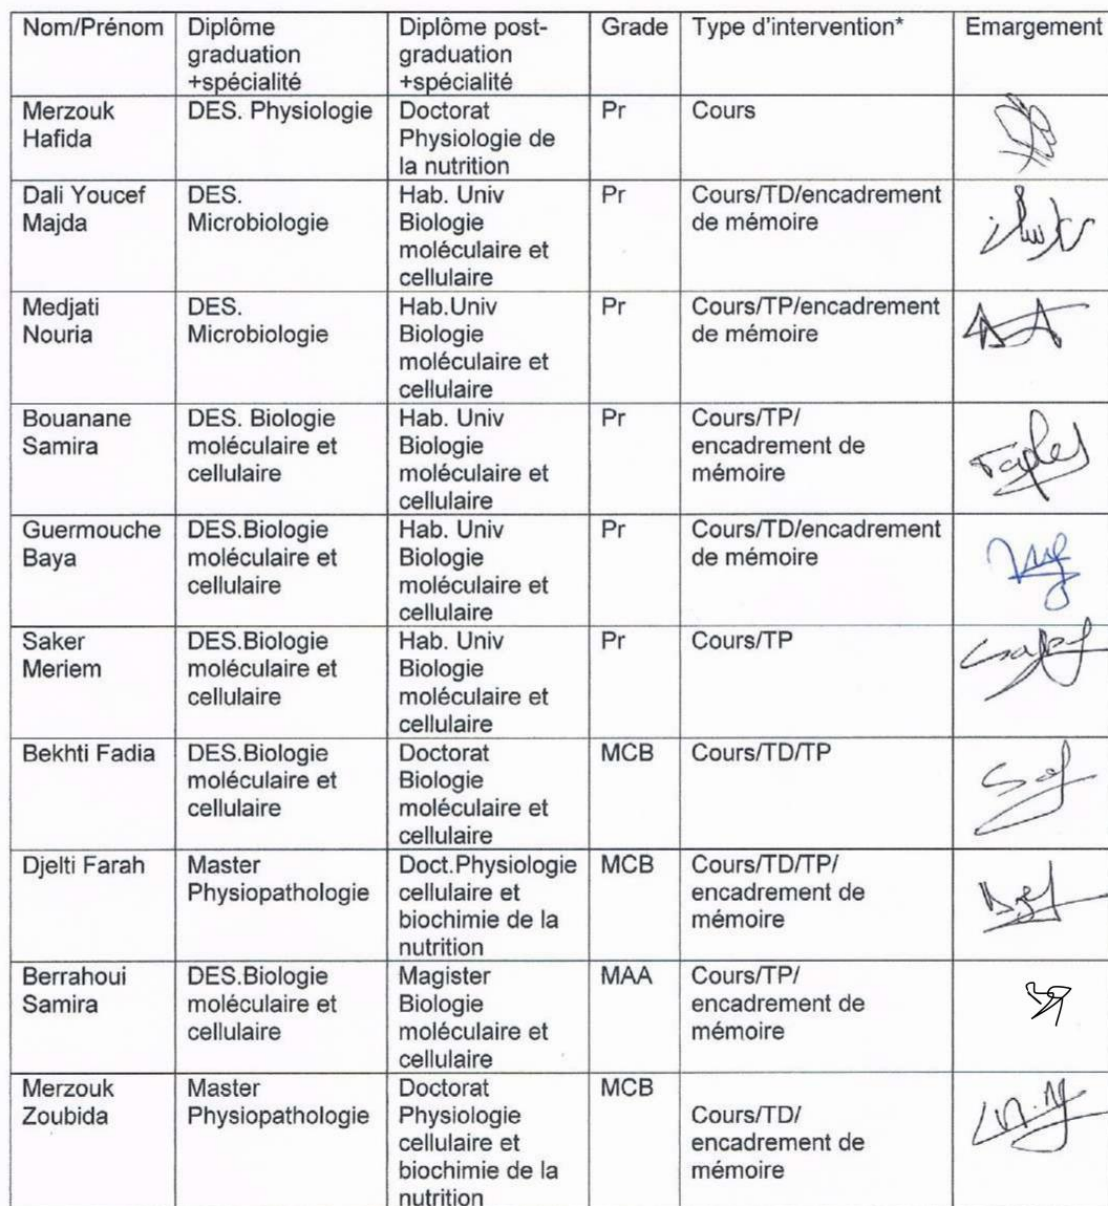 Nom/Prénom Diplôme graduation +spécialité Diplôme post-graduation +spécialité Grade Type d'intervention* Emargement
Merzouk Hafida DES. Physiologie Doctorat Physiologie de la nutrition Pr Cours
Dali Youcef Majda DES. Microbiologie Hab. Univ Biologie moléculaire et cellulaire Pr Cours/TD/encadrement de mémoire
Medjati Nouria DES. Microbiologie Hab.Univ Biologie moléculaire et cellulaire Pr Cours/TP/encadrement de mémoire
Bouanane Samira DES. Biologie moléculaire et cellulaire Hab. Univ Biologie moléculaire et cellulaire Pr Cours/TP/ encadrement de mémoire
Guermouche Baya DES.Biologie moléculaire et cellulaire Hab. Univ Biologie moléculaire et cellulaire Pr Cours/TD/encadrement de mémoire
Saker Meriem DES.Biologie moléculaire et cellulaire Hab. Univ Biologie moléculaire et cellulaire Pr Cours/TP
Bekhti Fadia DES.Biologie moléculaire et cellulaire Doctorat Biologie moléculaire et cellulaire MCB Cours/TD/TP
Djelti Farah Master Physiopathologie Doct.Physiologie cellulaire et biochimie de la nutrition MCB Cours/TD/TP/ encadrement de mémoire
Berrahoui Samira DES.Biologie moléculaire et cellulaire Magister Biologie moléculaire et cellulaire MAA Cours/TP/ encadrement de mémoire
Merzouk Zoubida Master Physiopathologie Doctorat Physiologie cellulaire et biochimie de la nutrition MCB Cours/TD/ encadrement de mémoire